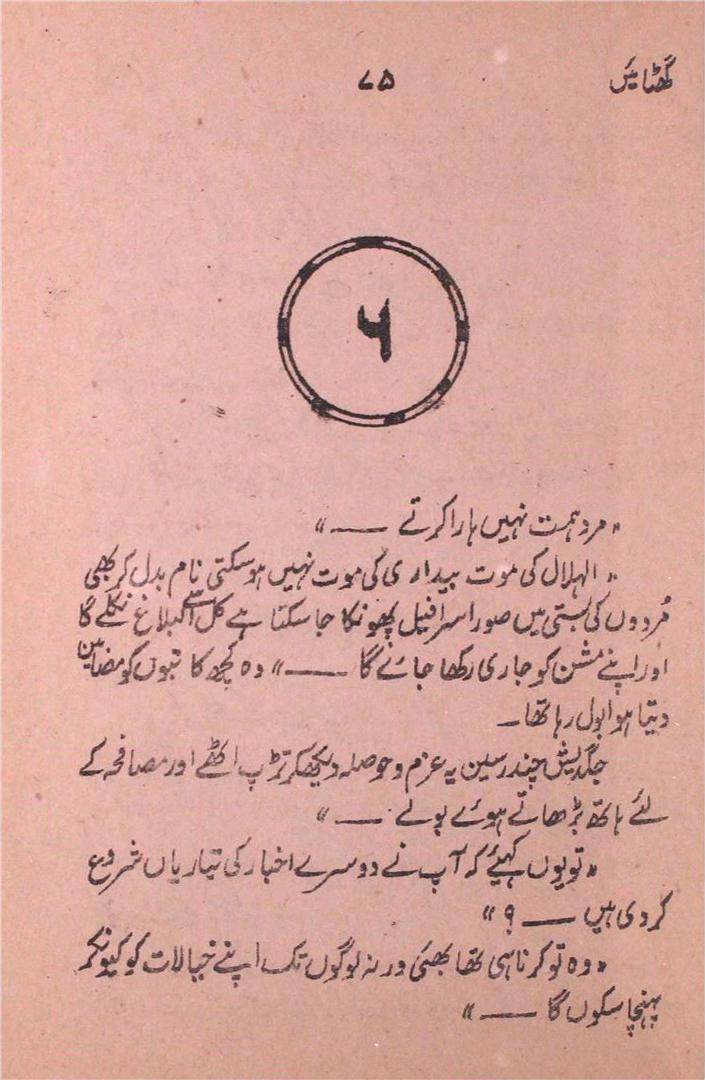 گھٹائیں ۷۵
۶
"مرد ہمت نہیں ہارا کرتے ——"
"الہلال کی موت بیداری کی موت نہیں ہو سکتی نام بدل کر بھی
مُردوں کی بستی میں صور اسرافیل پھونکا جا سکتا ہے کل سے البلاغ نکلے گا
اور اپنے مشن کو جاری رکھا جائے گا ——" وہ کچھ کاتبوں کو مضامین
دیتا ہوا بول رہا تھا۔
جگدیش چندر سین یہ عزم و حوصلہ دیکھ کر تڑپ اٹھے اور مصافحہ کے
لئے ہاتھ بڑھاتے ہوئے بولے ——"
"تو یوں کہیئے کہ آپ نے دوسرے اخبار کی تیاریاں شروع
کر دی ہیں —— ؟"
"وہ تو کرنا ہی تھا بھئی ورنہ لوگوں تک اپنے خیالات کو کیونکر
پہنچا سکوں گا ——"